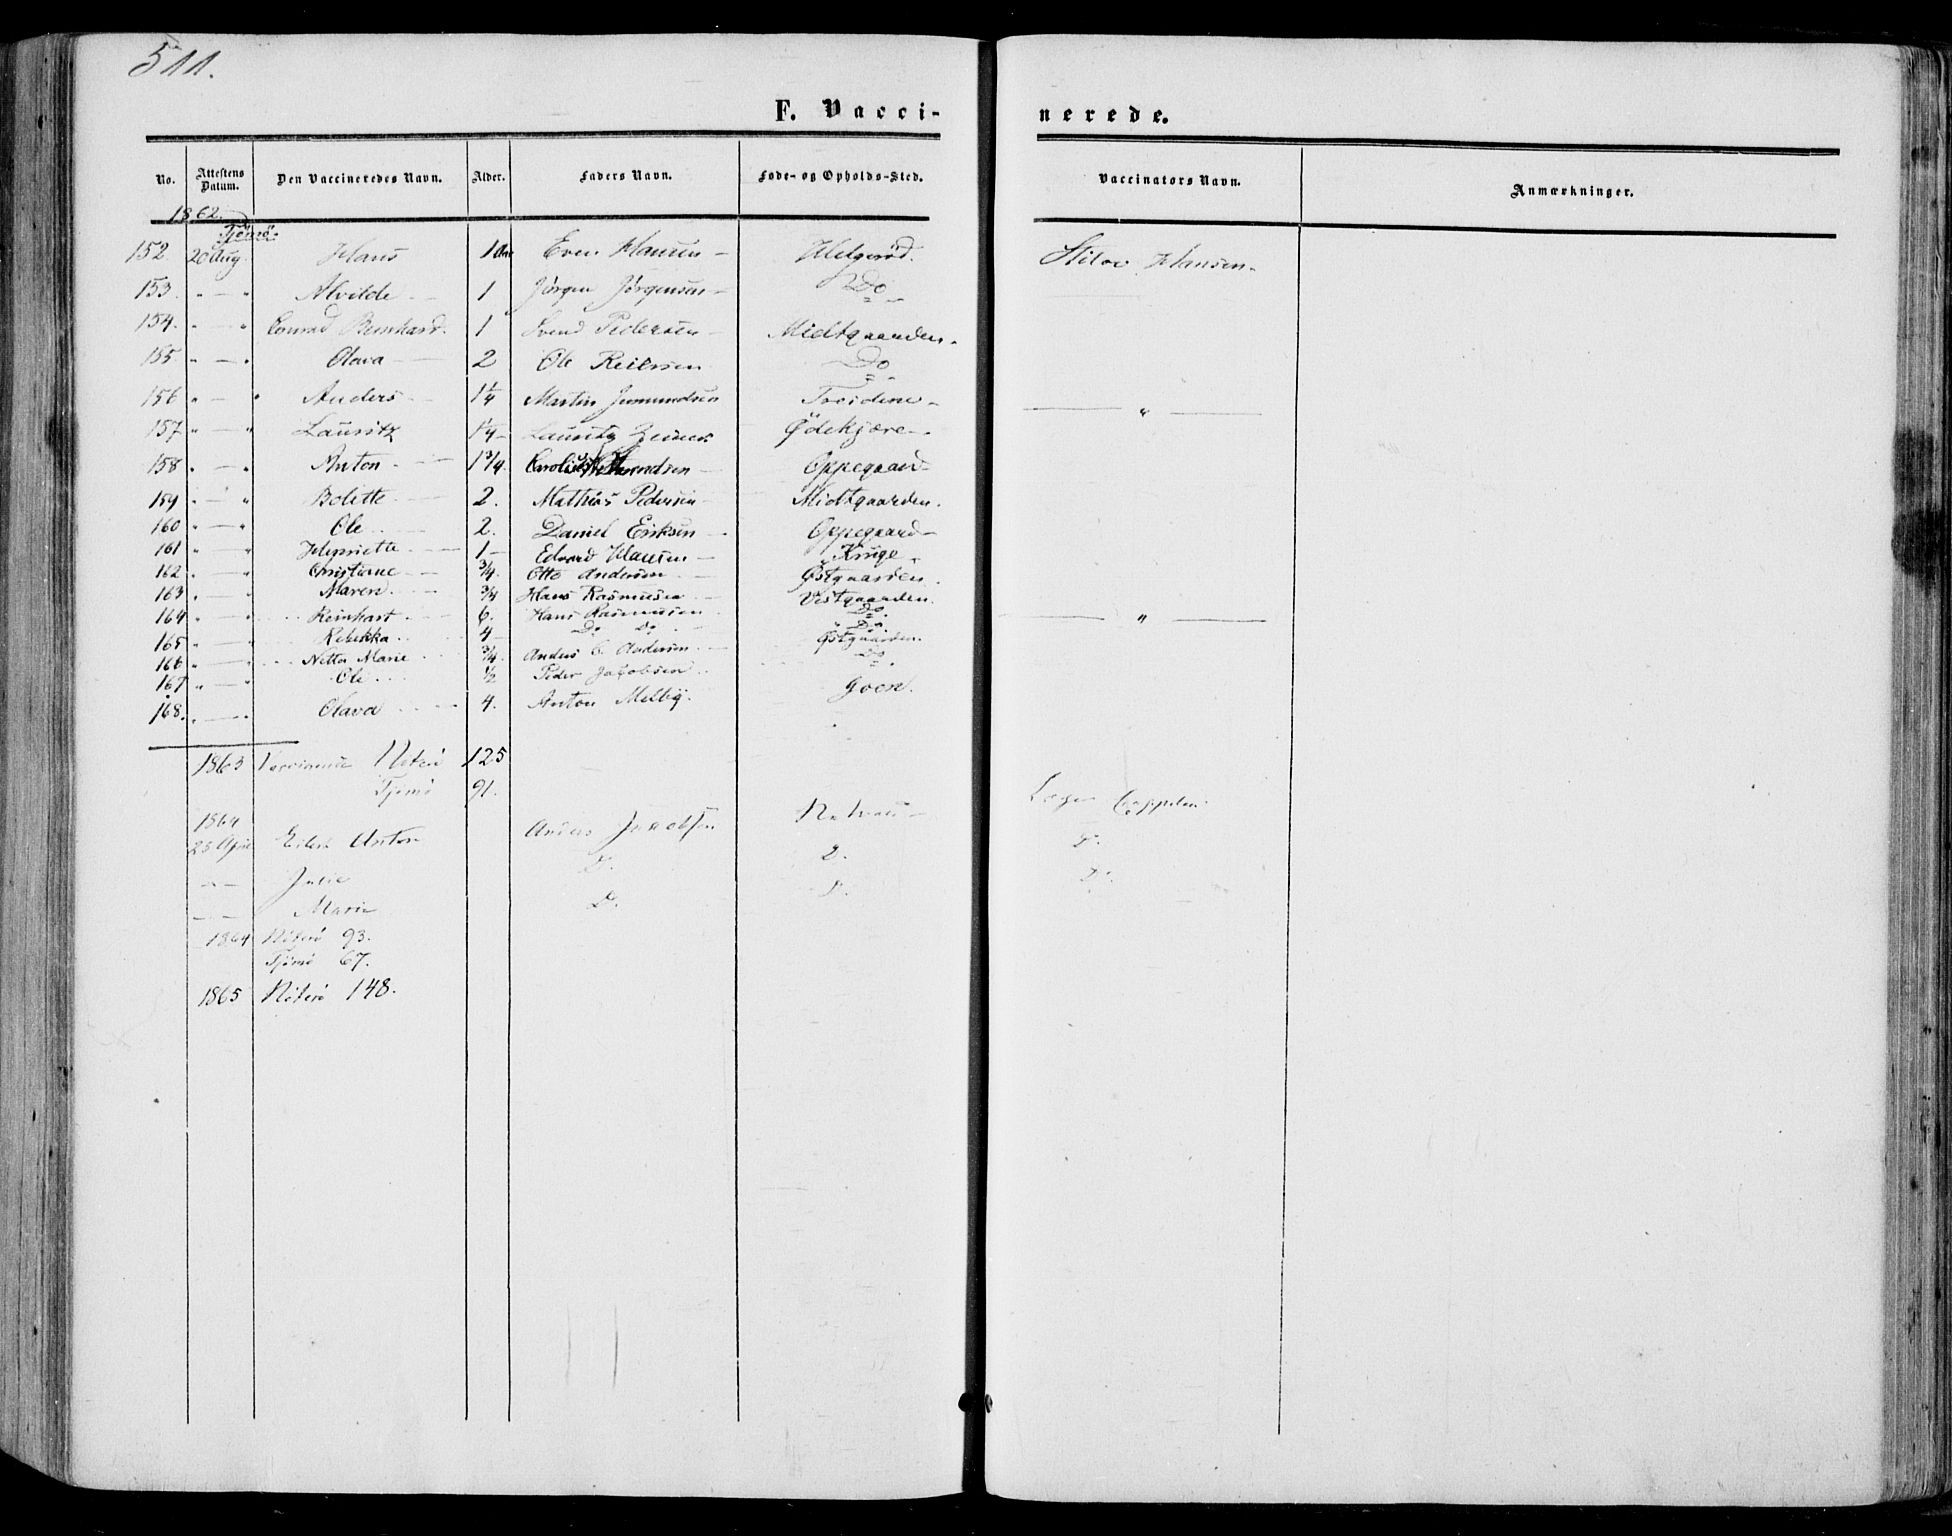 511.
F. Vacci- nerede.
No. Attestens Datum. Den Vaccineredes Navn. Alder. Faders Navn. Føde- og Opholds-Sted. Vaccinators Navn. Anmærkninger.
1862.
Tjømø.
152. 20 Aug. Hans 1 Even Hansen - Helgerød. Hansen.
153. " — " Alvilde 1 Jørgen Jørgensen - Do
154. " — " Conrad Bernhard. 1 Svend Pedersen - Midtgaarden.
155 " — " Olava 2 Ole Reiersen Do
156 " — " Anders 1 1/4 Martin
157 " — " Lauritz 1 1/4 Lauritz Zeiner Ødekjære.
158 " — " Anton 1 3/4 Oppegaard
159 " — " Bolette 2. Mathias Pedersen Midtgaarden.
160 " — " Ole 2. Daniel Eriksen Oppegaard
161 " — " Henriette 1 Edvard Hansen Kruge
162 " — " Christiane 3/4. Otto Andersen Østgaarden.
163 " — " Maren 3/4 Hans Rasmussen Vestgaarden.
164 " — " Reinhart 6. Hans Rasmussen Do.
165 " — " Rebekka 4 Do Do Do.
166 " — " Netta Marie 3/4. Anders C. Andersen Østgaarden.
167 " — " Ole 1/2 Peder Jacobsen Do
168. " — " Olava 4. Anton Melby. Goen.
1863 Vaccinerede Nøterø 125
Tjømø 91.
1864
25 April Eilert Anton Anders Jacobsen Cappelen
— Julie D. D. D.
— Marie D. D. D.
1864 Nøterø 93.
Tjømø 67.
1865 Nøterø 148.